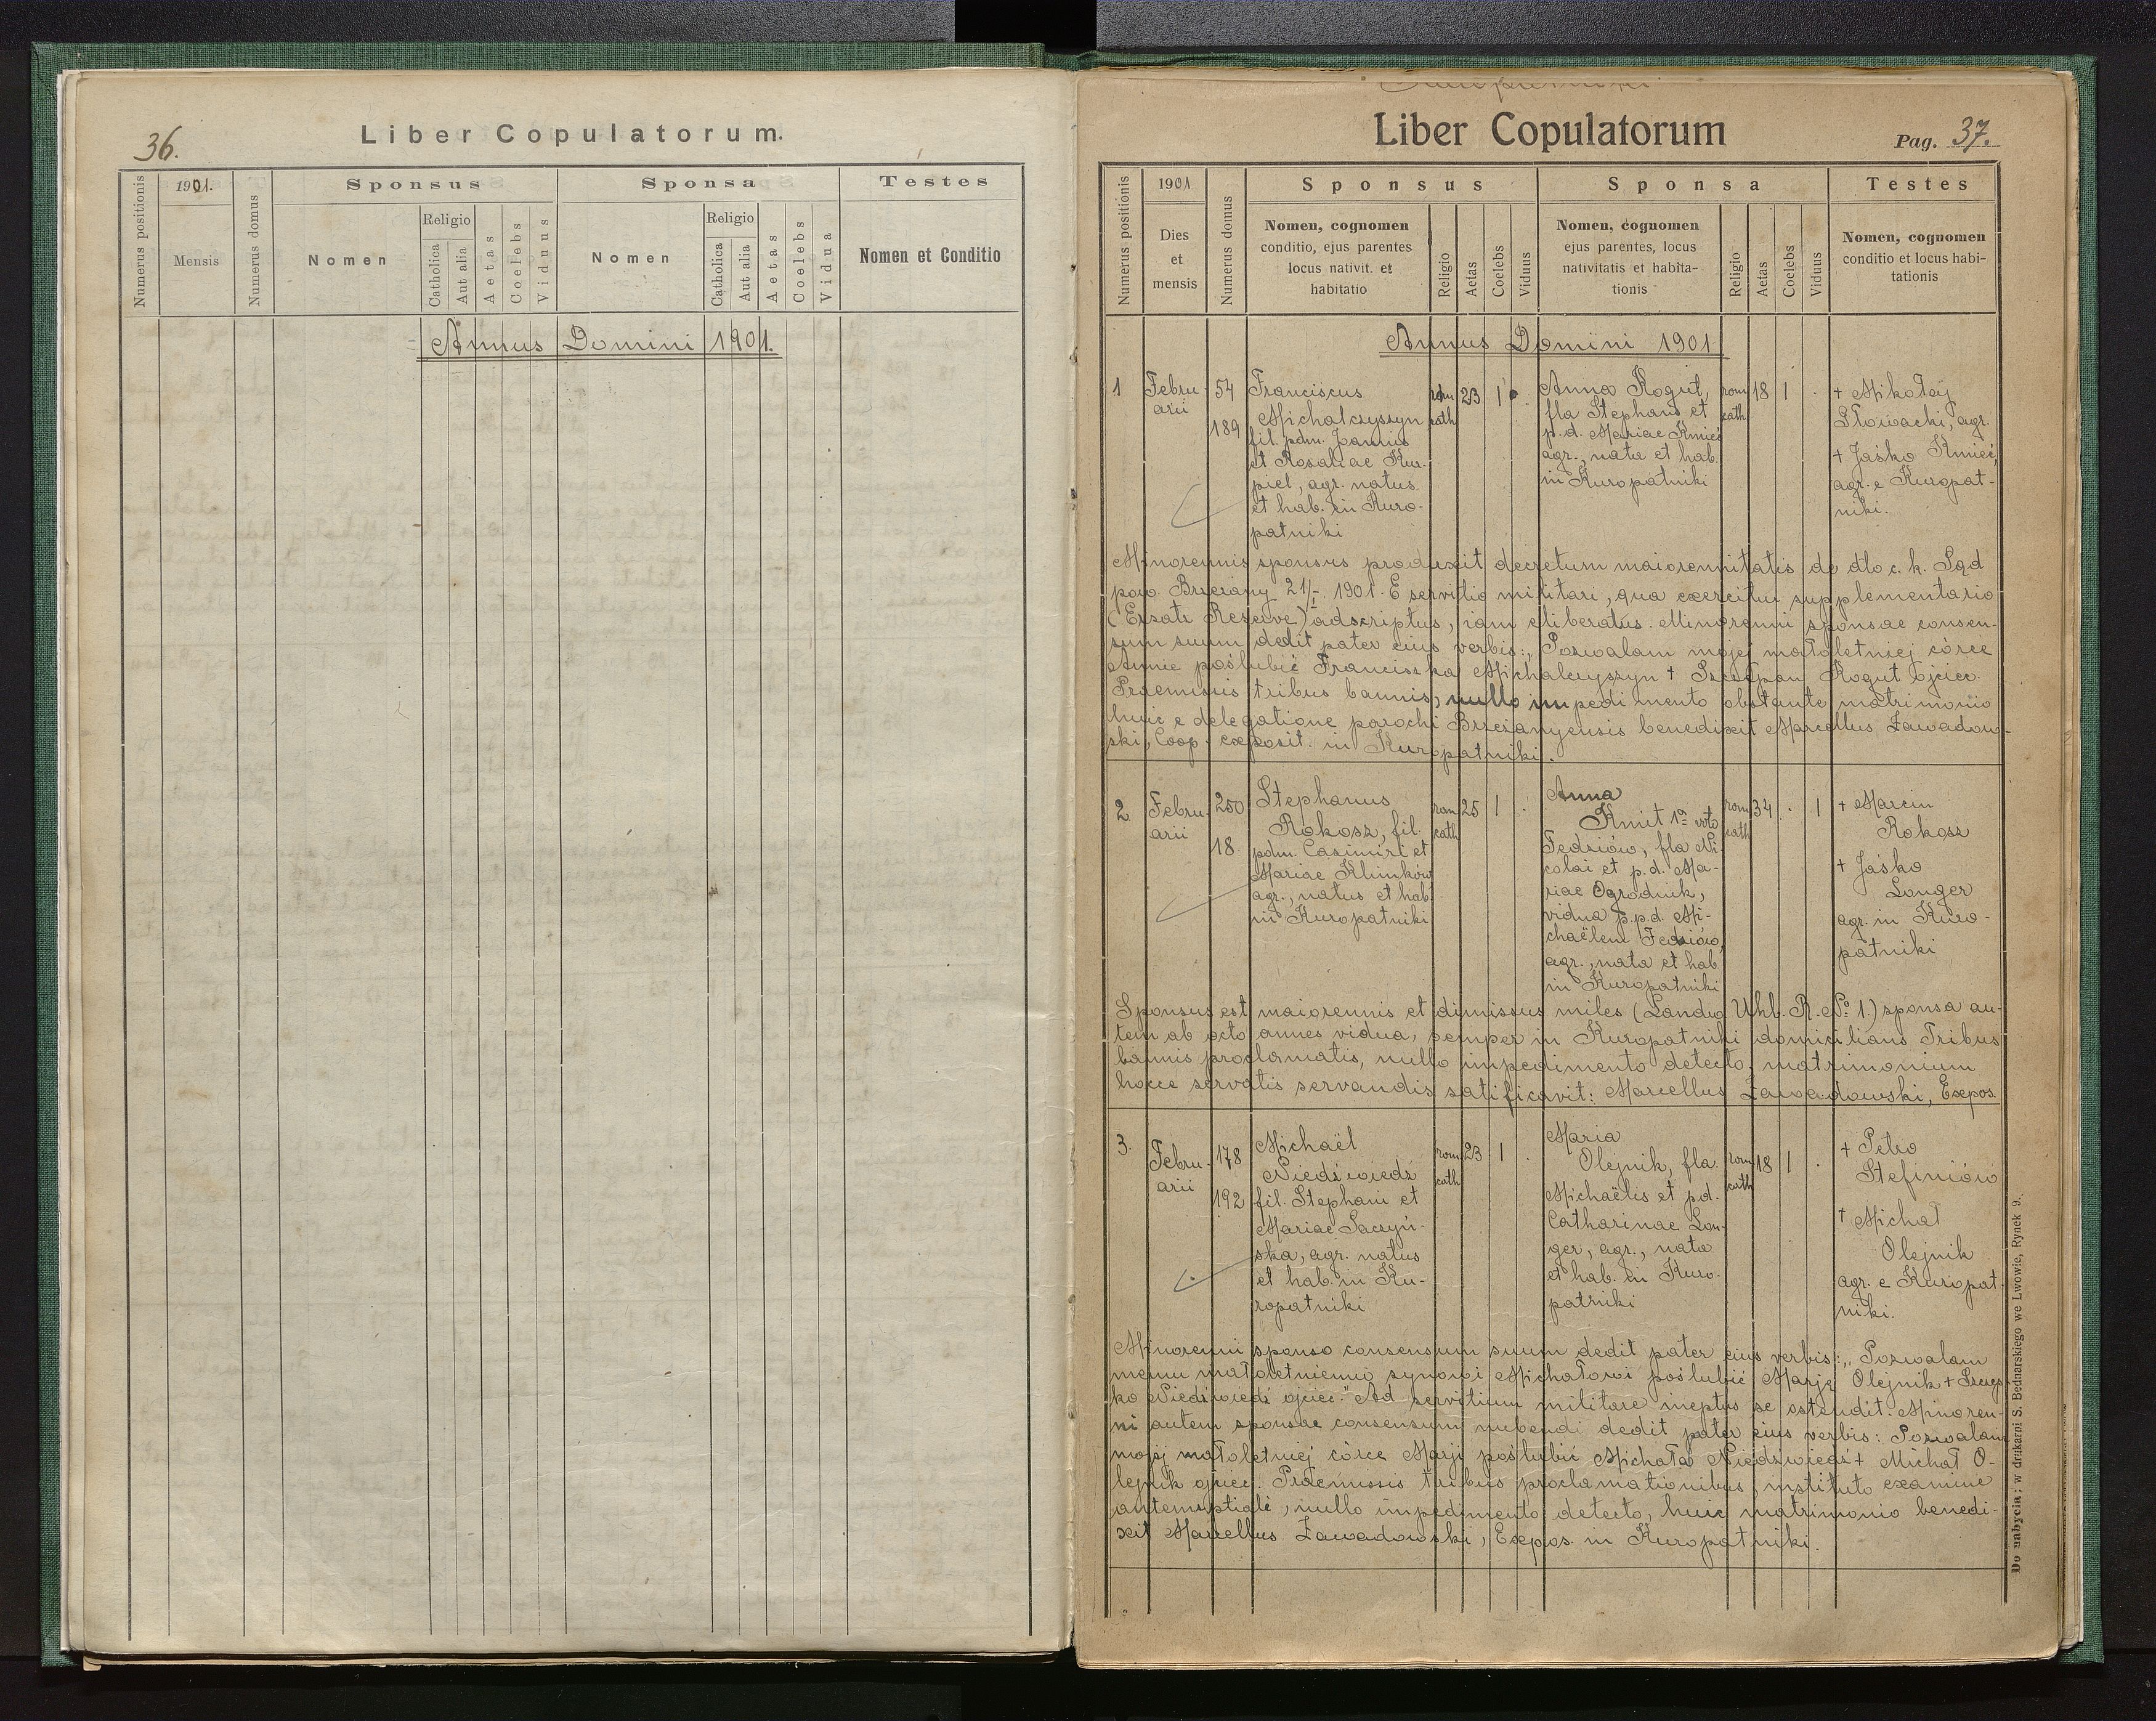 36.
Liber Copulatorum.
Numerus positionis
1901.
Mensis
Numerus domus
Sponsus
Nomen
Religio
Catholica
Aut alia
Aetas
Coelebs
Viduus
Sponsa
Nomen
Religio
Catholica
Aut alia
Aetas
Coelebs
Vidua
Testes
Nomen et Conditio
Annus Domini 1901.
Liber Copulatorum
Pag. 37.
Numerus positionis
1901
Dies
et
mensis
Numerus domus
Sponsus
Nomen, cognomen
conditio, ejus parentes
locus nativit. et
habitatio
Religio
Aetas
Coelebs
Viduus
Sponsa
Nomen, cognomen
ejus parentes, locus
nativitatis et habita-
tionis
Religio
Aetas
Coelebs
Viduus
Testes
Nomen, cognomen
conditio et locus habi-
tationis
Annus Domini 1901
1
Febru-
arii
54
189
Franciscus
Michalczyszyn
fil. pdm. Joannis
et Rosaliae Kur-
piel, agr. natus
et hab. in Kuro-
patniki
rom
cath
23
1
.
Anna Kogut,
fla Stephani et
p.d. Mariae Kmieć
agr., nata et hab.
in Kuropatniki
rom
cath
18
1
.
+ Mikołaj
Słowacki, agr.
+ Jaśko Kmieć,
agr. e Kuropat-
niki.
Minorennis sponsus produxit decretum maiorennitatis de dto c. k. Sąd
pow. Brzeżany 21/I. 1901. E servitio militari, qua exercitui supplementario
(Ersatz Reserve) adscriptus, iam eliberatus. Minorenni sponsae consen-
sum suum dedit pater eius verbis: „Pozwalam mojej małoletniej córce
Annie poślubić Franciszka Michalczyszyn + Szczepan Kogut ojciec.
Praemissis tribus bannis, nullo impedimento obstante matrimonio
huic e delegatione parochi Brzeżanyensis benedixit Marcellus Zawadow-
ski, Coop. exposit. in Kuropatniki.
2
Febru-
arii
250
18.
Stephanus
Rokosz, fil.
pdm. Casimiri et
Mariae Klimkow
agr., natus et hab.
in Kuropatniki
rom
cath
25
1
.
Anna
Kmit 1ª voto
Fedziów, fla Ni-
colai et p.d. Ma-
riae Ogrodnik,
vidua p.p.d. Mi-
chaëlem Fedziów,
agr., nata et hab.
in Kuropatniki
rom
cath
34
.
1
+ Marcin
Rokosz
+ Jaśko
Longer
agr. in Kuro-
patniki
Sponsus est maiorennis et dimissus miles (Landw. Uhl. R. Nº 1.) sponsa au-
tem ab octo annes vidua, semper in Kuropatniki domicilians Tribus
bannis proclamatis, nullo impedimento detecto, matrimonium
hocce servatis servandis satificavit: Marcellus Zawadowski, Expos.
3.
Febru-
arii
178
192
Michaël
Niedźwiedź
fil. Stephani et
Mariae Saczyń-
ska, agr. natus
et hab. in Ku-
ropatniki
rom
cath
23
1
.
Maria
Olejnik, fla.
Michaëlis et pd.
Catharinae Lon-
ger, agr., nata
et hab. in Kuro-
patniki
rom
cath
18
1
.
+ Petro
Stefiniów
+ Michał
Olejnik
agr. e Kuropat-
niki.
Minorenni sponso consensum suum dedit pater eius verbis: „Pozwalam
memu małoletniemu synowi Michałowi poślubić Marję Olejnik +
ko Niedźwiedź ojciec." Ad servitium militare ineptus se ostendit. Minoren-
ni autem sponsae consensum nubendi dedit pater eius verbis: Pozwalam
mojej małoletniej córce Marji poślubić Michała Niedźwiedź + Michał O-
lejnik ojciec. Praemissis tribus proclamationibus, instituto examine
antenuptiali, nullo impedimento detecto, huic matrimonio benedi-
xit Marcellus Zawadowski, Expos. in Kuropatniki.
Do nabycia: w drukarni S. Bednarskiego we Lwowie, Rynek 9.